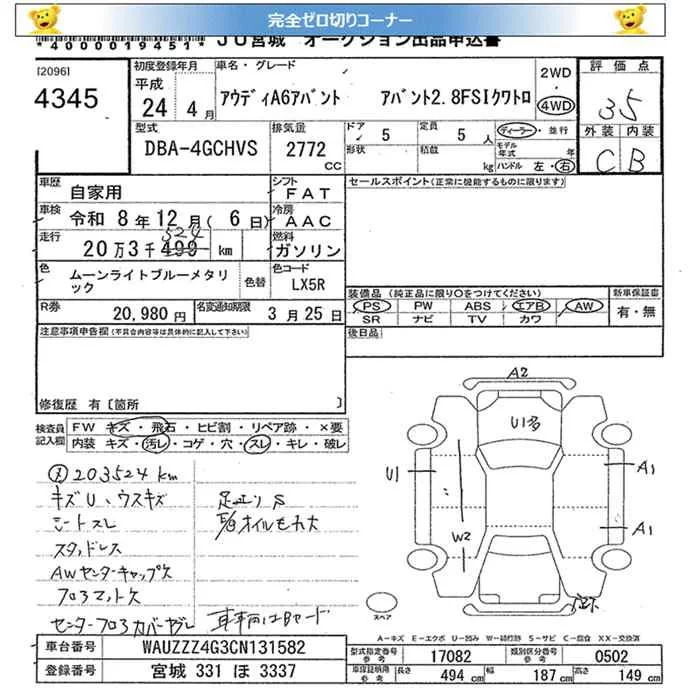 完全ゼロ切りコーナー
*4000019451* JU宮城 オークション出品申込書
[2096]
4345
初度登録年月
平成
24 年 4 月
車名・グレード
アウディA6アバント アバント2.8FSIクワトロ
2WD
4WD
評価点
3.5
外装 内装
C B
型式
DBA-4GCHVS
排気量
2772
CC
ドア 5
形状
定員 5 人
積載 kg
ディーラー・並行
モデル年式 年
ハンドル 左・右
車歴 自家用
シフト FAT
車検 令和 8年 12月( 6日)
冷房 AAC
走行 20万3千 499 km
524
燃料 ガソリン
色 ムーンライトブルーメタリック
色替
色コード LX5R
R券 20,980円
名変通知期限 3月25日
セールスポイント(正常に機能するものに限ります)
装備品(純正品に限り○をつけてください)
PS PW ABS エアB AW
SR ナビ TV カワ
新車保証書
有・無
後日品
注意事項申告欄(不具合内容等は具体的に記入して下さい)
修復歴 有〔箇所 〕
検査員記入欄
FW キズ・飛石・ヒビ割・リペア跡・×要
内装 キズ・汚レ・コゲ・穴・スレ・キレ・破レ
203524km
キズU、ウスキズ
シートスレ
スタッドレス
AWセンターキャップ欠
フロアマット欠
センターフロアカバーヤブレ
オイルもれ大
A2
U1多
U1
A1
W2
A1
スペア
A−キズ E−エクボ U−凹み W−補修跡 S−サビ C−腐食 XX−交換済
車台番号 WAUZZZ4G3CN131582
登録番号 宮城 331 ほ 3337
型式指定番号 参考 17082
類別区分番号 参考 0502
車庫証明用 参考 長さ 494 cm 幅 187 cm 高さ 149 cm